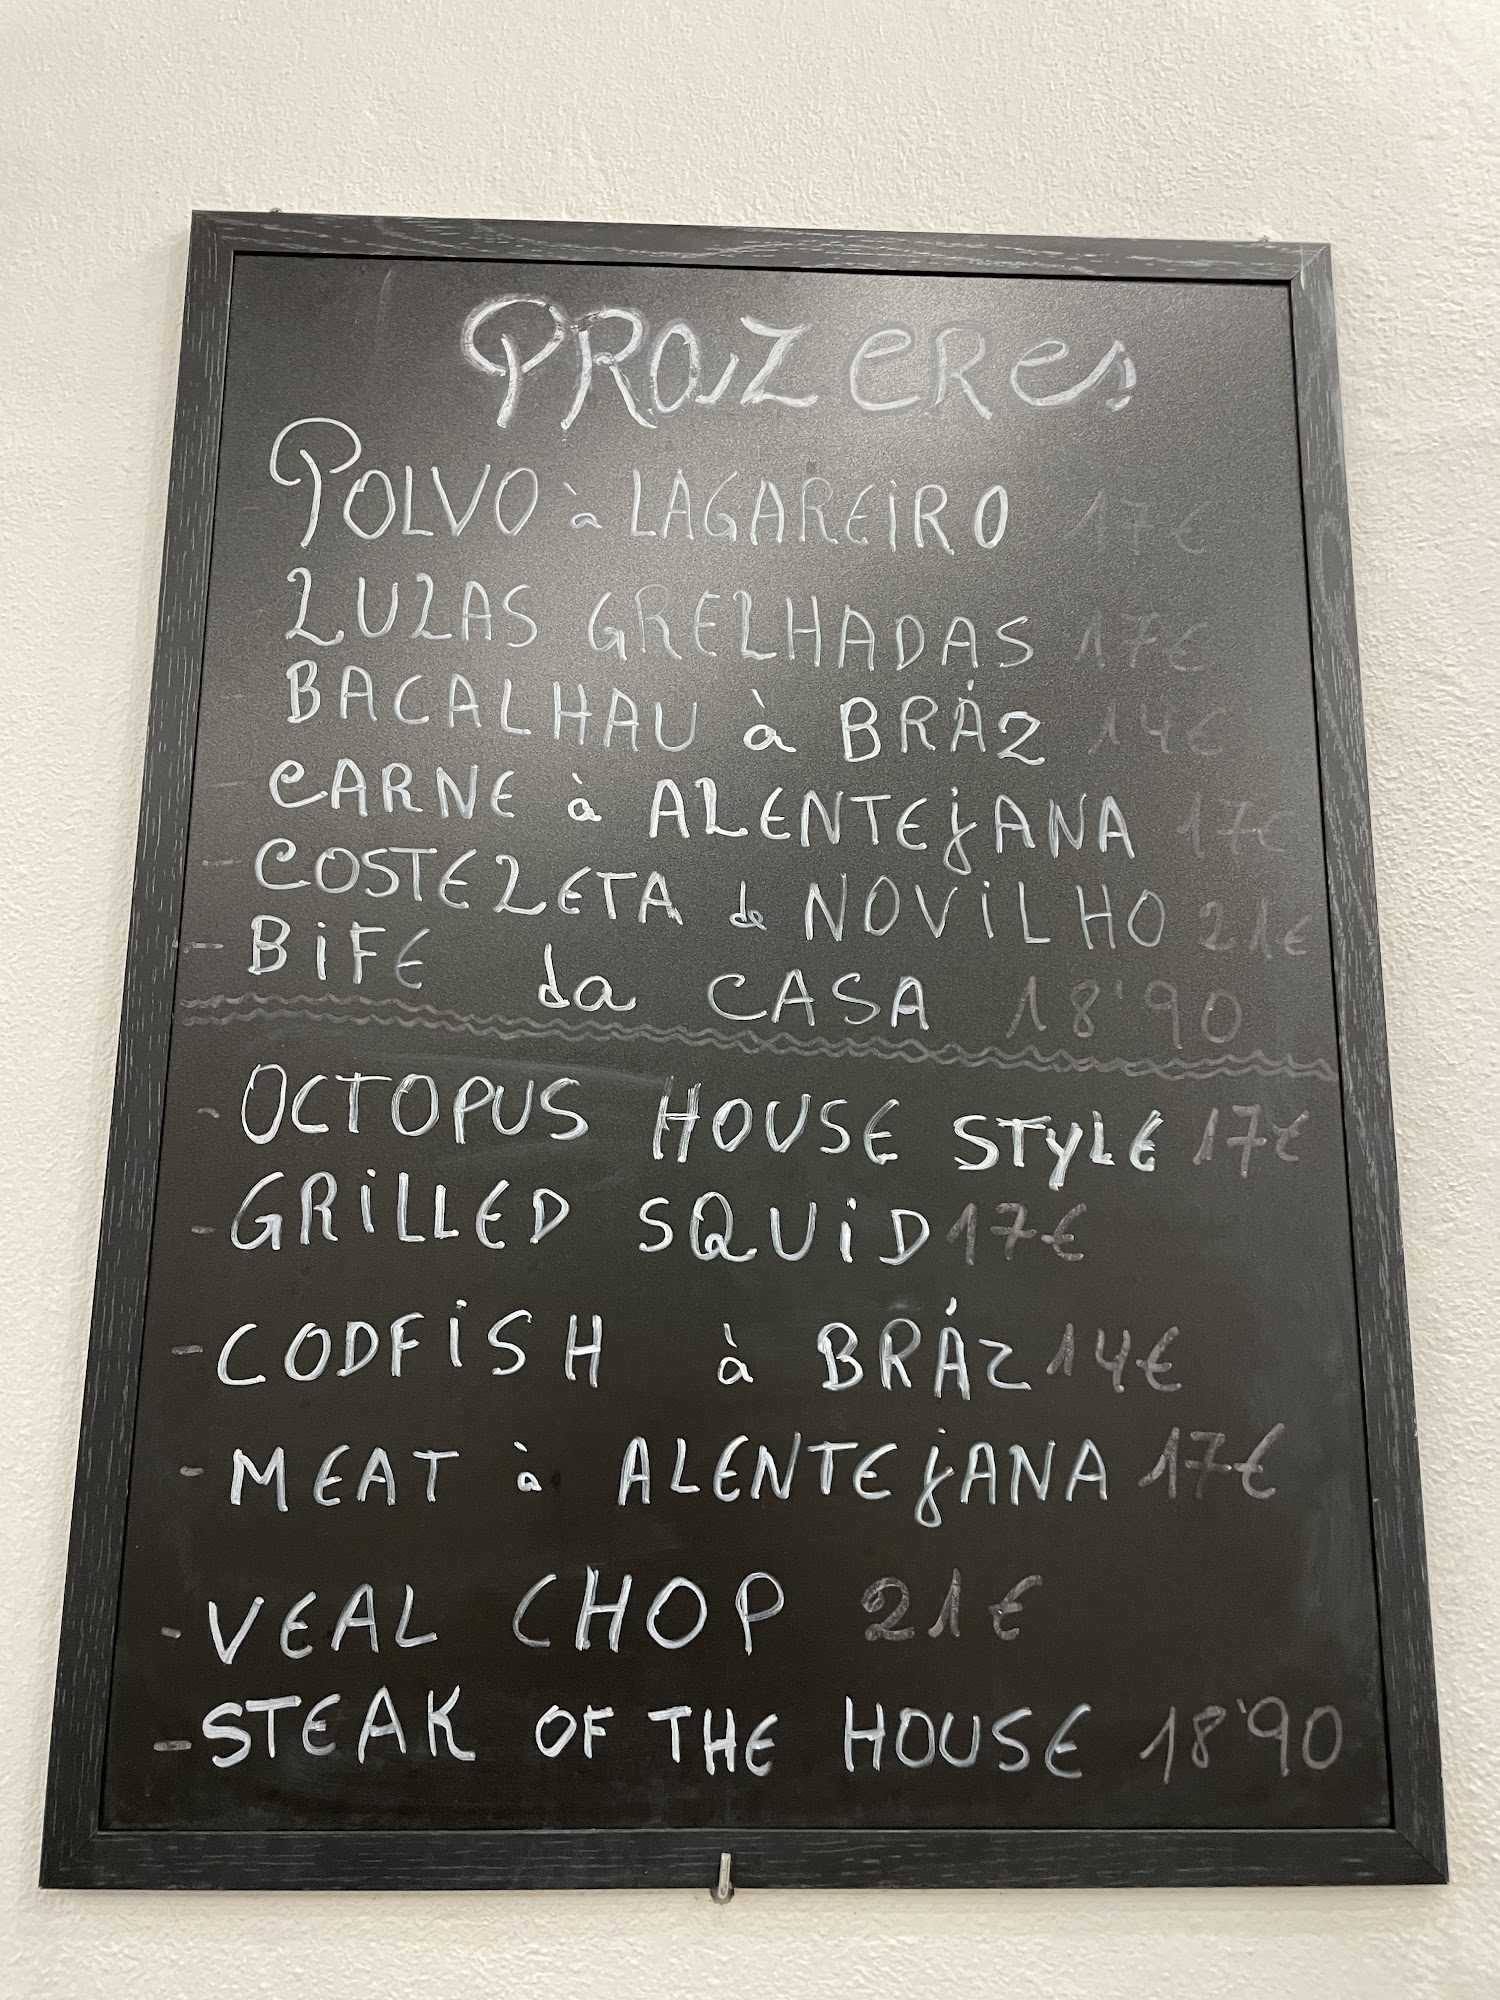 PRAZERES
POLVO à LAGAREIRO 17€
LULAS GRELHADAS 17€
BACALHAU à BRÁZ 14€
CARNE à ALENTEJANA 17€
COSTELETA de NOVILHO 21€
- BIFE da CASA 18'90
- OCTOPUS HOUSE STYLE 17€
- GRILLED SQUID 17€
- CODFISH à BRÁZ 14€
- MEAT à ALENTEJANA 17€
- VEAL CHOP 21€
- STEAK OF THE HOUSE 18'90